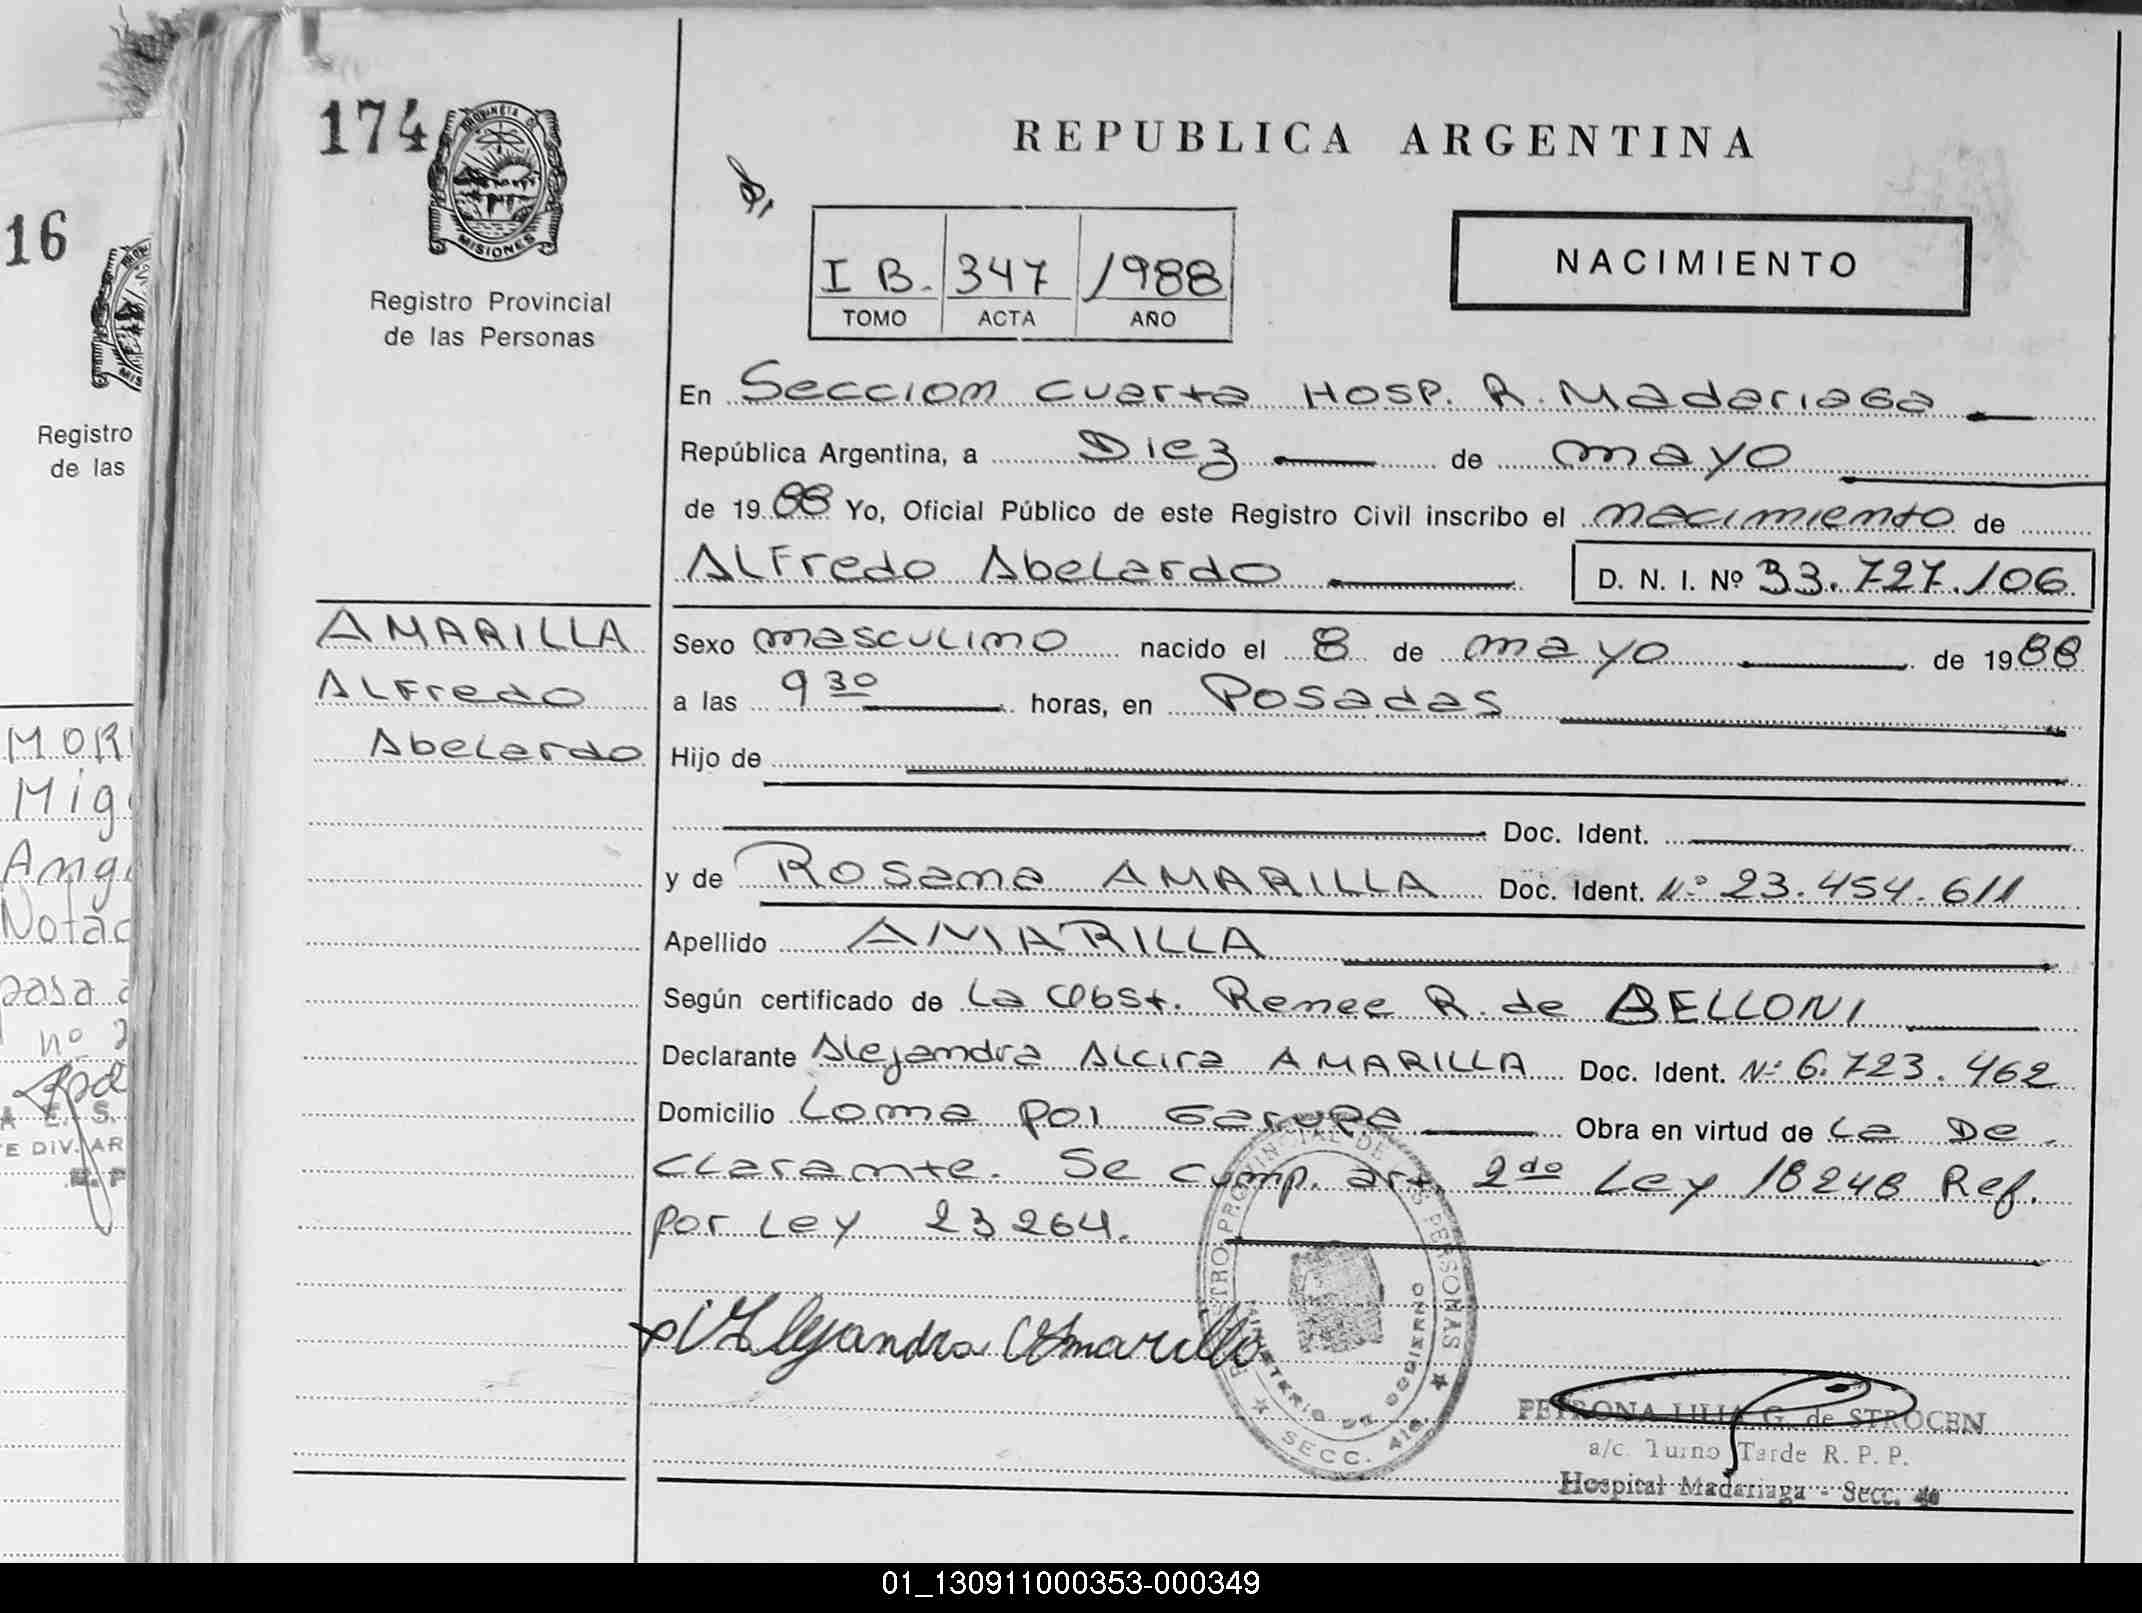 174
PROVINCIA DE
MISIONES
Registro Provincial
de las Personas
REPUBLICA ARGENTINA
I B. 347 1988
TOMO ACTA AÑO
NACIMIENTO
En Seccion cuarta Hosp. R. Madariaga
República Argentina, a Diez de mayo
de 1988 Yo, Oficial Público de este Registro Civil inscribo el nacimiento de
ALFredo Abelardo D. N. I. Nº 33.727.106
AMARILLA
ALFredo
Abelardo
Sexo masculino nacido el 8 de mayo de 1988
a las 9 30 horas, en Posadas
Hijo de
Doc. Ident.
y de Rosana AMARILLA Doc. Ident. Nº 23.454.611
Apellido AMARILLA
Según certificado de La Obst. Renee R. de BELLONI
Declarante Alejandra Alcira AMARILLA Doc. Ident. Nº 6.723.462
Domicilio Loma Poi Garupa Obra en virtud de La De
clarante. Se cump. art. 2do Ley 18248 Ref.
por Ley 23264.
Alejandra Amarilla
REGISTRO PROVINCIAL DE LAS PERSONAS
MINISTERIO DE GOBIERNO
SECC. 4ta.
PETRONA LILIA G. de STROCEN
a/c. Turno Tarde R. P. P.
Hospital Madariaga - Secc. 4a
16
Registro
de las
MOR
Mig
Ang
Notac
pasa a
nº 2
E. S.
E DIV. AR
01_130911000353-000349